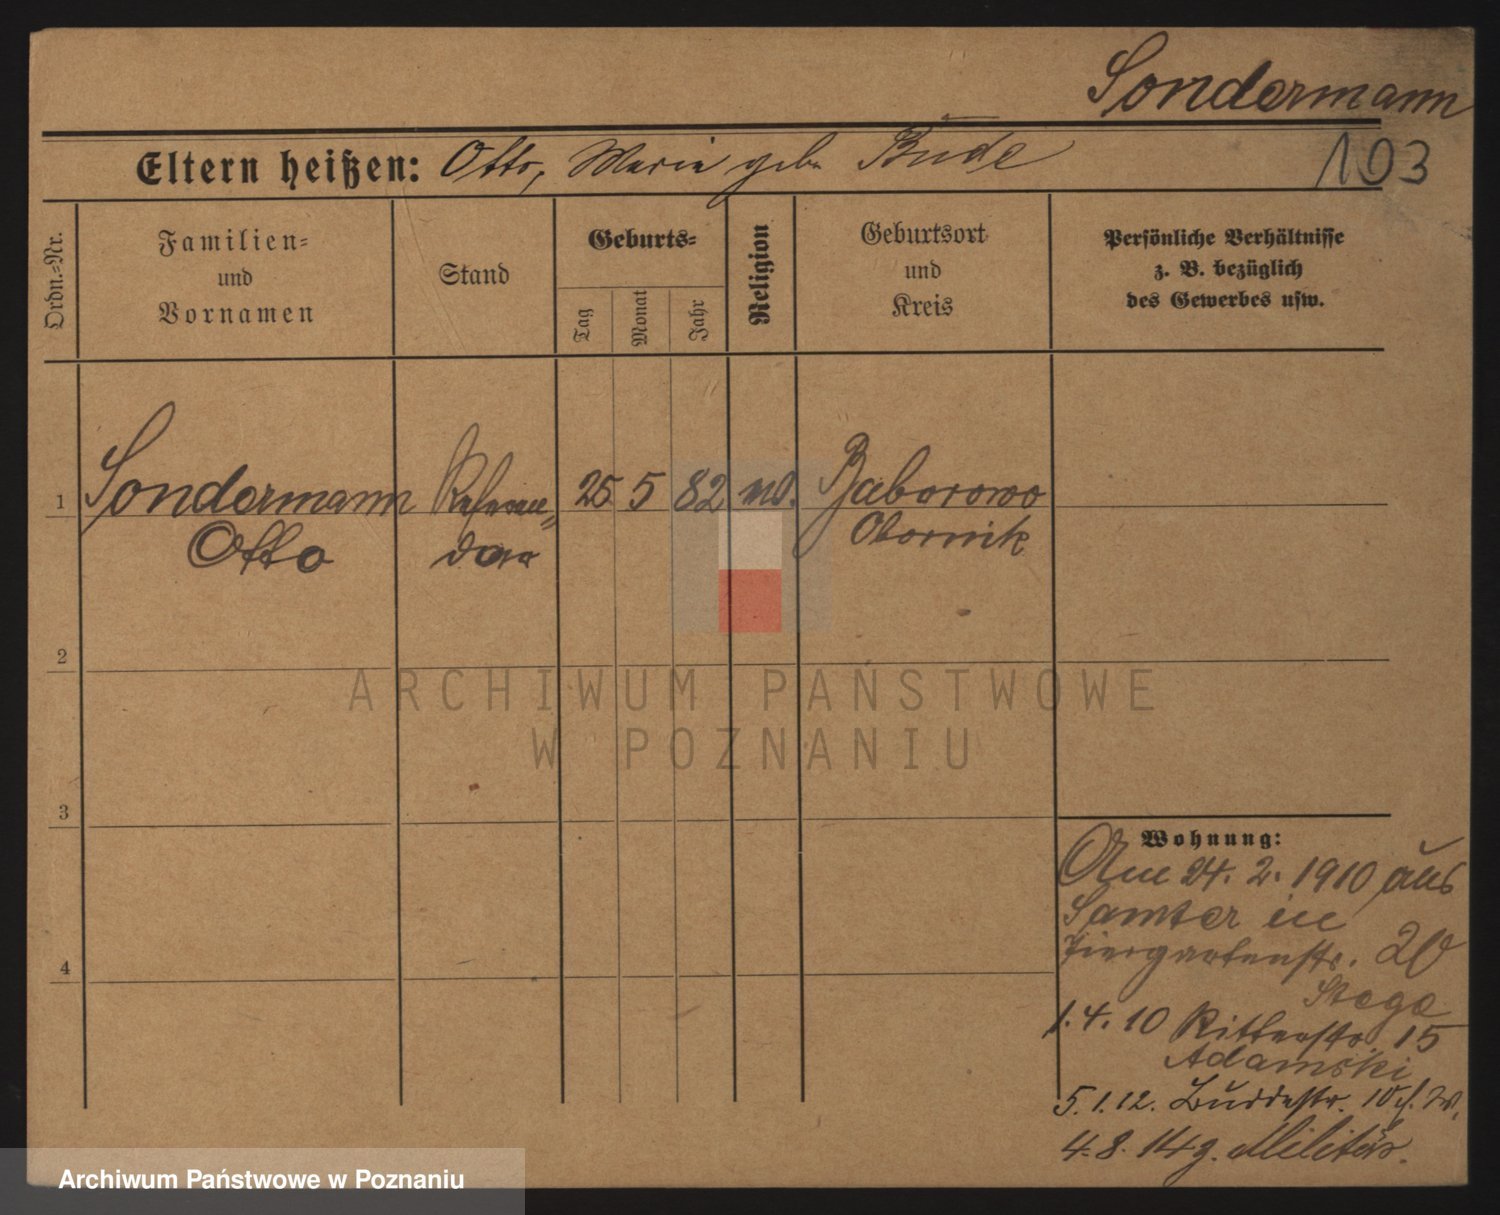 Sondermann
103
Eltern heißen: Otto, Marie geb. Bude
Ordn.-Nr.
Familien-
und
Vornamen
Stand
Geburts-
Tag
Monat
Jahr
Religion
Geburtsort
und
Kreis
Persönliche Verhältnisse
z. B. bezüglich
des Gewerbes usw.
1
Sondermann
Otto
Referen-
dar
25
5
82
Baborowo
Obornik
2
ARCHIWUM PAŃSTWOWE
W POZNANIU
3
4
Wohnung:
Am 24. 2. 1910 aus
Samter in
Tiergartenstr. 20
Stege
1. 4. 10 Ritterstr. 15
Adamski
5. 1. 12. Buddestr. 10
4. 8. 14 z. Militär.
Archiwum Państwowe w Poznaniu